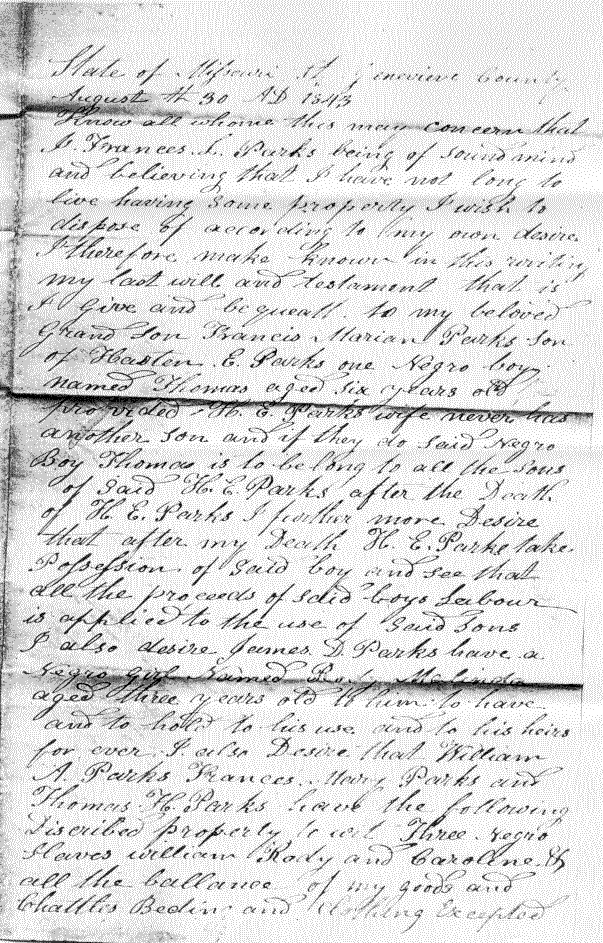 State of Missouri St Genevieve County
August th 30 AD 1843
Know all whome this may concern that
I. Frances. L. Parks being of sound mind
and believing that I have not long to
live having some property I wish to
dispose of according to my own desire
I therefore make known in this writing
my last will and testament that is
I give and bequeath to my beloved
Grand Son Francis Marian Parks son
of Hasten E. Parks one Negro boy
named Thomas aged six years old
provided H. E. Parks wife never has
another son and if they do said Negro
Boy Thomas is to belong to all the sons
of said H. E. Parks after the Death
of H. E. Parks I further more Desire
that after my Death H. E. Parks take
Possession of said boy and see that
all the proceeds of said boys Labour
is applied to the use of said sons
I also desire James D. Parks have a
Negro girl Named Malinda
aged three years old to him to have
and to hold to his use and to his heirs
for ever I also Desire that William
A. Parks Frances Mary Parks and
Thomas H. Parks have the following
Discribed property to wit Three Negro
Slaves william Rody and Caroline &
all the ballance of my goods and
Chattles Beding and Clothing Excepted